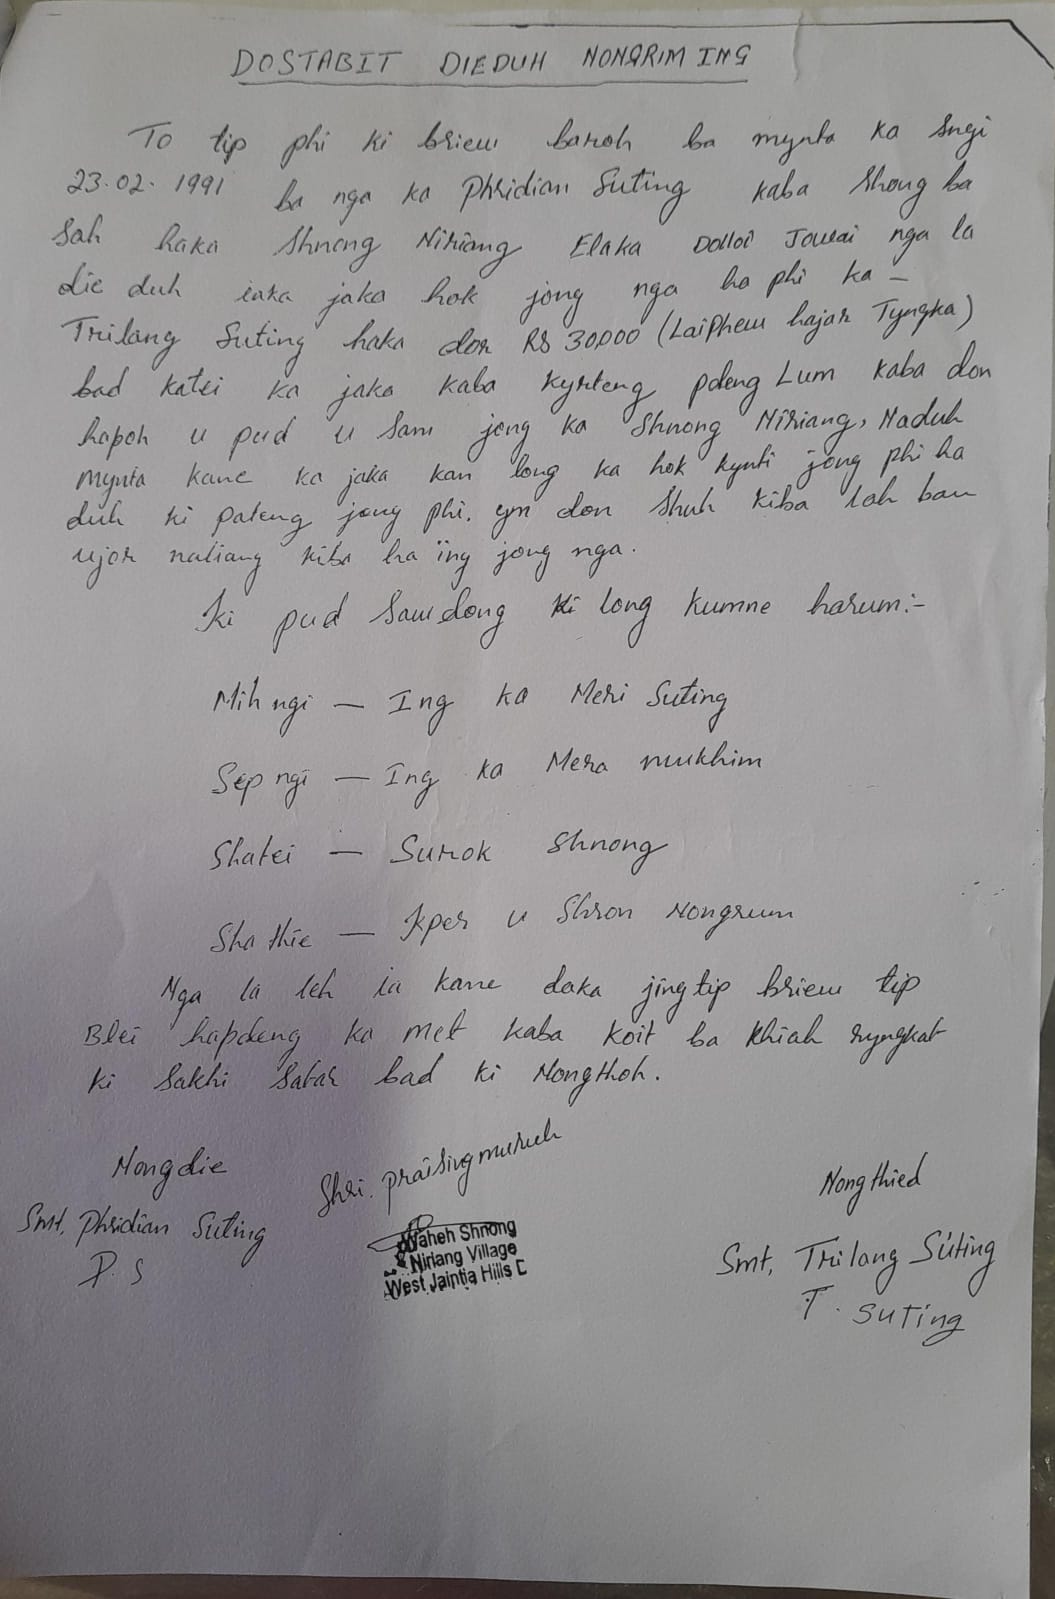 DOSTABIT DIEDUH NONGRIM ING
To tip phi ki briew baroh ba mynta ka sngi
23.02.1991 ba nga ka Phridian Suting kaba shong ba
sah haka shnong Niriang Elaka Dolloi Jowai nga la
die duh iaka jaka hok jong nga ha phi ka –
Trilang Suting haka dor Rs 30,000 (Laiphew hajar Tyngka)
bad katei ka jaka kaba kyrteng pdeng Lum kaba don
hapoh u pud u sam jong ka Shnong Niriang, Naduh
mynta kane ka jaka kan long ka hok kynti jong phi ha
duh ki pateng jong phi. ym don shuh kiba lah ban
ujor naliang kiba ha ïng jong nga.
Ki pud sawdong ki long kumne harum:-
Mih ngi – Ing ka Meri Suting
Sep ngi – Ing ka Mera mukhim
Shatei – Surok shnong
Sha thie – Kper u Shron Nongrum
Nga la leh ia kane daka jingtip briew tip
Blei hapdeng ka met kaba koit ba khiah ryngkat
ki sakhi sabar bad ki Nongthoh.
Nongdie
Smt, Phridian Suting
P. S
Shri. Praising muruh
Waheh Shnong
Niriang Village
West Jaintia Hills D
Nongthied
Smt, Trilang Suting
T. Suting